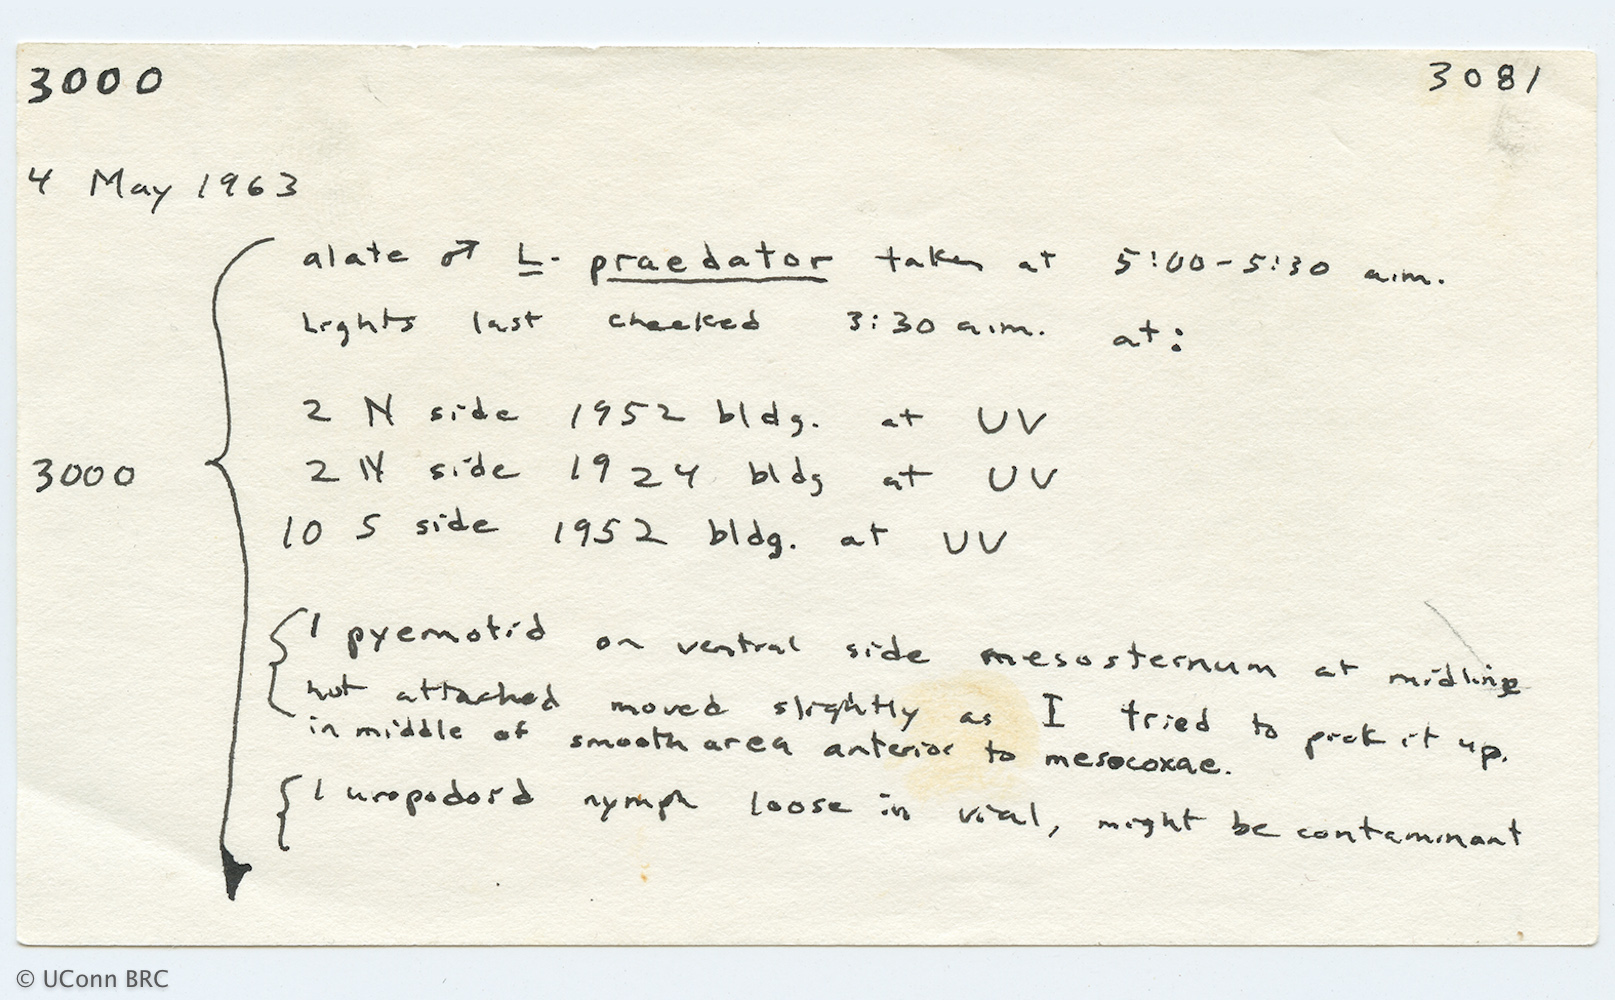 3000 3081
4 May 1963
alate ♂ L. praedator taken at 5:00-5:30 a.m.
lights last checked 3:30 a.m. at:
2 N side 1952 bldg. at UV
3000 2 N side 1924 bldg at UV
10 S side 1952 bldg. at UV
1 pyemotid on ventral side mesosternum at midline
not attached moved slightly as I tried to pick it up.
in middle of smooth area anterior to mesocoxae.
1 uropodoid nymph loose in vial, might be contaminant
© UConn BRC